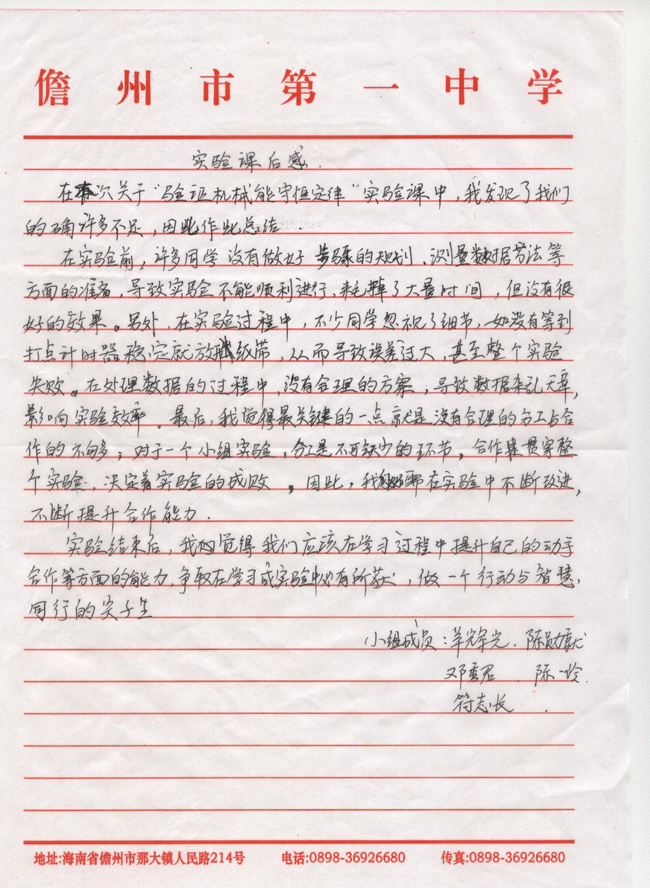 儋州市第一中学
实验课后感.
在本次关于"验证机械能守恒定律"实验课中,我发现了我们
的确许多不足,因此作此总结.
在实验前,许多同学没有做好步骤的规划、测量数据方法等
方面的准备,导致实验不能顺利进行、耗掉了大量时间,但没有很
好的效果。另外,在实验过程中,不少同学忽视了细节,如没有等到
打点计时器稳定就放纸带,从而导致误差过大,甚至整个实验
失败。在处理数据的过程中,没有合理的方案,导致数据杂乱无章,
影响实验效率。最后,我觉得最关键的一点就是没有合理的分工与合
作的不够;对于一个小组实验,分工是不可缺少的环节,合作贯穿整
个实验,决定着实验的成败。因此,我们都在实验中不断改进,
不断提升合作能力.
实验结束后,我们觉得我们应该在学习过程中提升自己的动手
合作等方面的能力,争取在学习或实验中必有所获,做一个行动与智慧
同行的实子生
小组成员:羊冠光.陈勋献
邓勇君 陈一玲.
符志长.
地址:海南省儋州市那大镇人民路214号 电话:0898-36926680 传真:0898-36926680